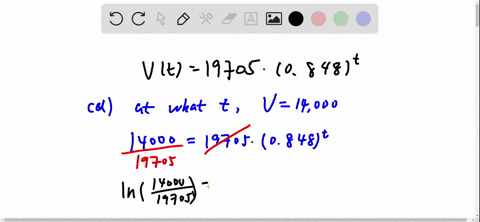 V(t) = 19705 · (0.848)^t
(d) at what t, V = 14,000
14000/19705 = 19705 · (0.848)^t
ln(14000/19705) =